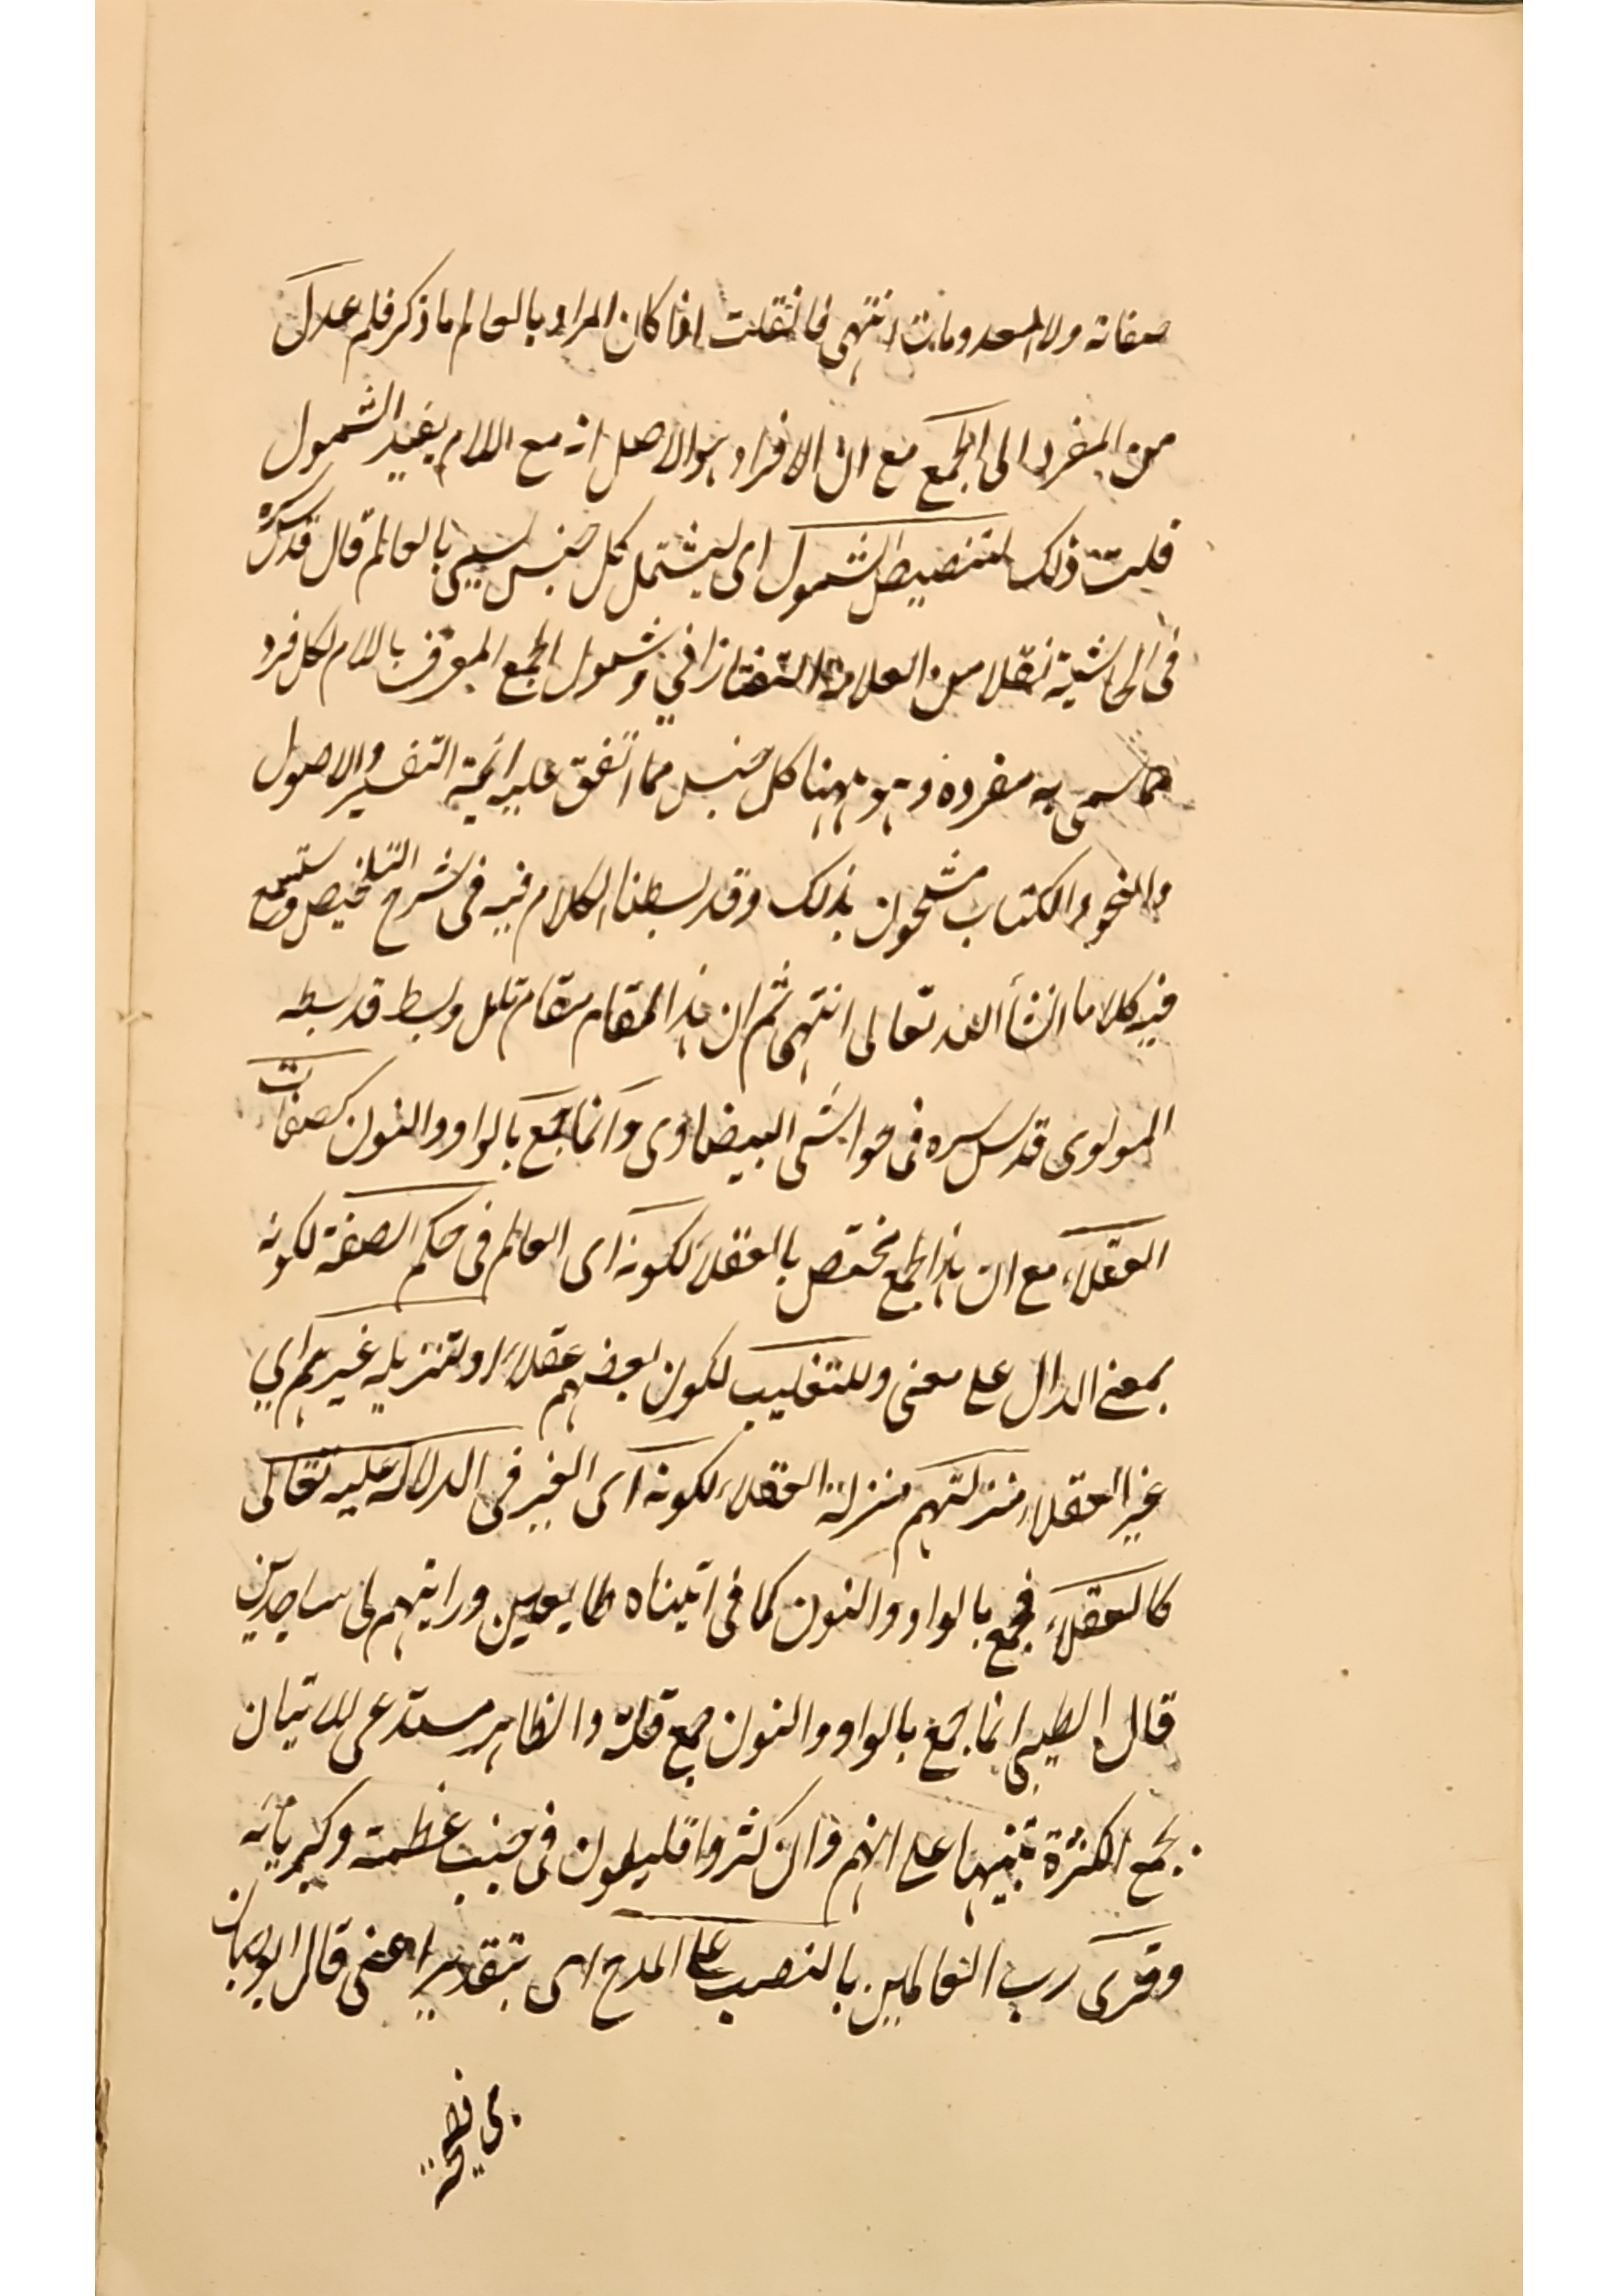 صفاته ولا المعدومات انتهى فان قلت اذا كان المراد بالعالم ما ذكر فلم عدل
من المفرد الى الجمع مع ان الافراد هو الاصل انه مع اللام يفيد الشمول
قلت ذلك لتنصيص الشمول اى ليشتمل كل جنس سمى بالعالم قال قدس سره
فى الحاشية نقلا من العلامة التفتازانى وشمول الجمع المعرف باللام لكل فرد
مما سمى به مفرده وهو ههنا كل جنس مما اتفق عليه ائمة التفسير والاصول
والنحو والكتاب مشحون بذلك وقد بسطنا الكلام فيه فى شرح التلخيص وستسمع
فيه كلاما انشأ الله تعالى انتهى ثم ان هذا المقام مقام وبسط قد بسطه
المولوى قدس سره فى حواشى البيضاوى وانما جمع بالواو والنون كصفات
العقلاء مع ان هذا الجمع مختص بالعقلاء لكونه اى العالم فى حكم الصفة لكونه
بمعنى الدال على معنى وللتغليب لكون بعضهم عقلاء او لتنزيله غيرهم اي
غير العقلاء منزلتهم منزلة العقلاء لكونه اى الغير فى الدلالة عليه تعالى
كالعقلاء فجمع بالواو والنون كما فى اتيناه طايعين ورايتهم لى ساجدين
قال الطيبى انما جمع بالواو والنون جمع قلة والظاهر مستدعى للاتيان
بجمع الكثرة تنبيها على انهم وان كثروا قليلون فى جنب عظمته وكبريائه
وقرى رب العالمين بالنصب على المدح اى بتقدير اعنى قال ابو حيان